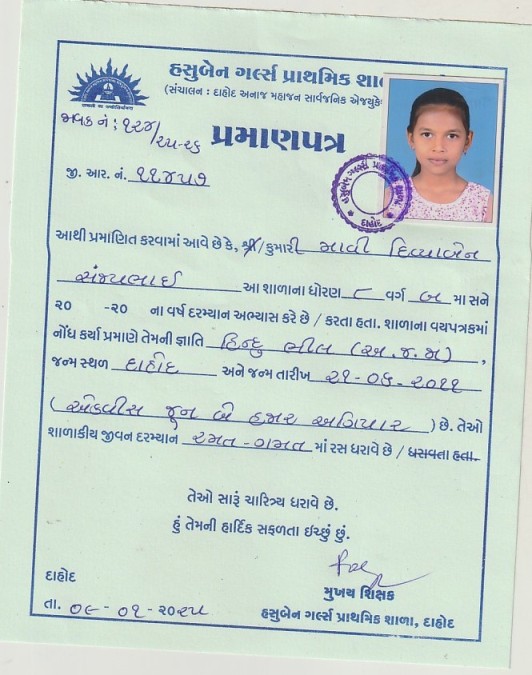 હસુબેન ગર્લ્સ પ્રાથમિક શાળ
(સંચાલન : દાહોદ અનાજ મહાજન સાર્વજનિક એજ્યુકે
જાવક નં : ૧૨૪/૨૫-૨૬
પ્રમાણપત્ર
જી. આર. નં. ૧૧૪૫૭
આથી પ્રમાણિત કરવામાં આવે છે કે, શ્રી/કુમારી માવી દિવ્યાબેન
સંજયભાઈ આ શાળાના ધોરણ ૮ વર્ગ બ મા સને
૨૦ -૨૦ ના વર્ષ દરમ્યાન અભ્યાસ કરે છે / કરતા હતા. શાળાના વયપત્રકમાં
નોંધ કર્યા પ્રમાણે તેમની જ્ઞાતિ હિન્દુ ભીલ (અ.જ.જા) ,
જન્મ સ્થળ દાહોદ અને જન્મ તારીખ ૨૧-૦૬-૨૦૧૧
(એકવીસ જૂન બે હજાર અગિયાર) છે. તેઓ
શાળાકીય જીવન દરમ્યાન રમત-ગમત માં રસ ધરાવે છે / ધરાવતા હતા.
તેઓ સારૂં ચારિત્ર્ય ધરાવે છે.
હું તેમની હાર્દિક સફળતા ઈચ્છું છું.
દાહોદ
મુખ્ય શિક્ષક
તા. ૦૯-૦૧-૨૦૨૫
હસુબેન ગર્લ્સ પ્રાથમિક શાળા, દાહોદ
હસુબેન ગર્લ્સ પ્રાથમિક શાળા
દાહોદ